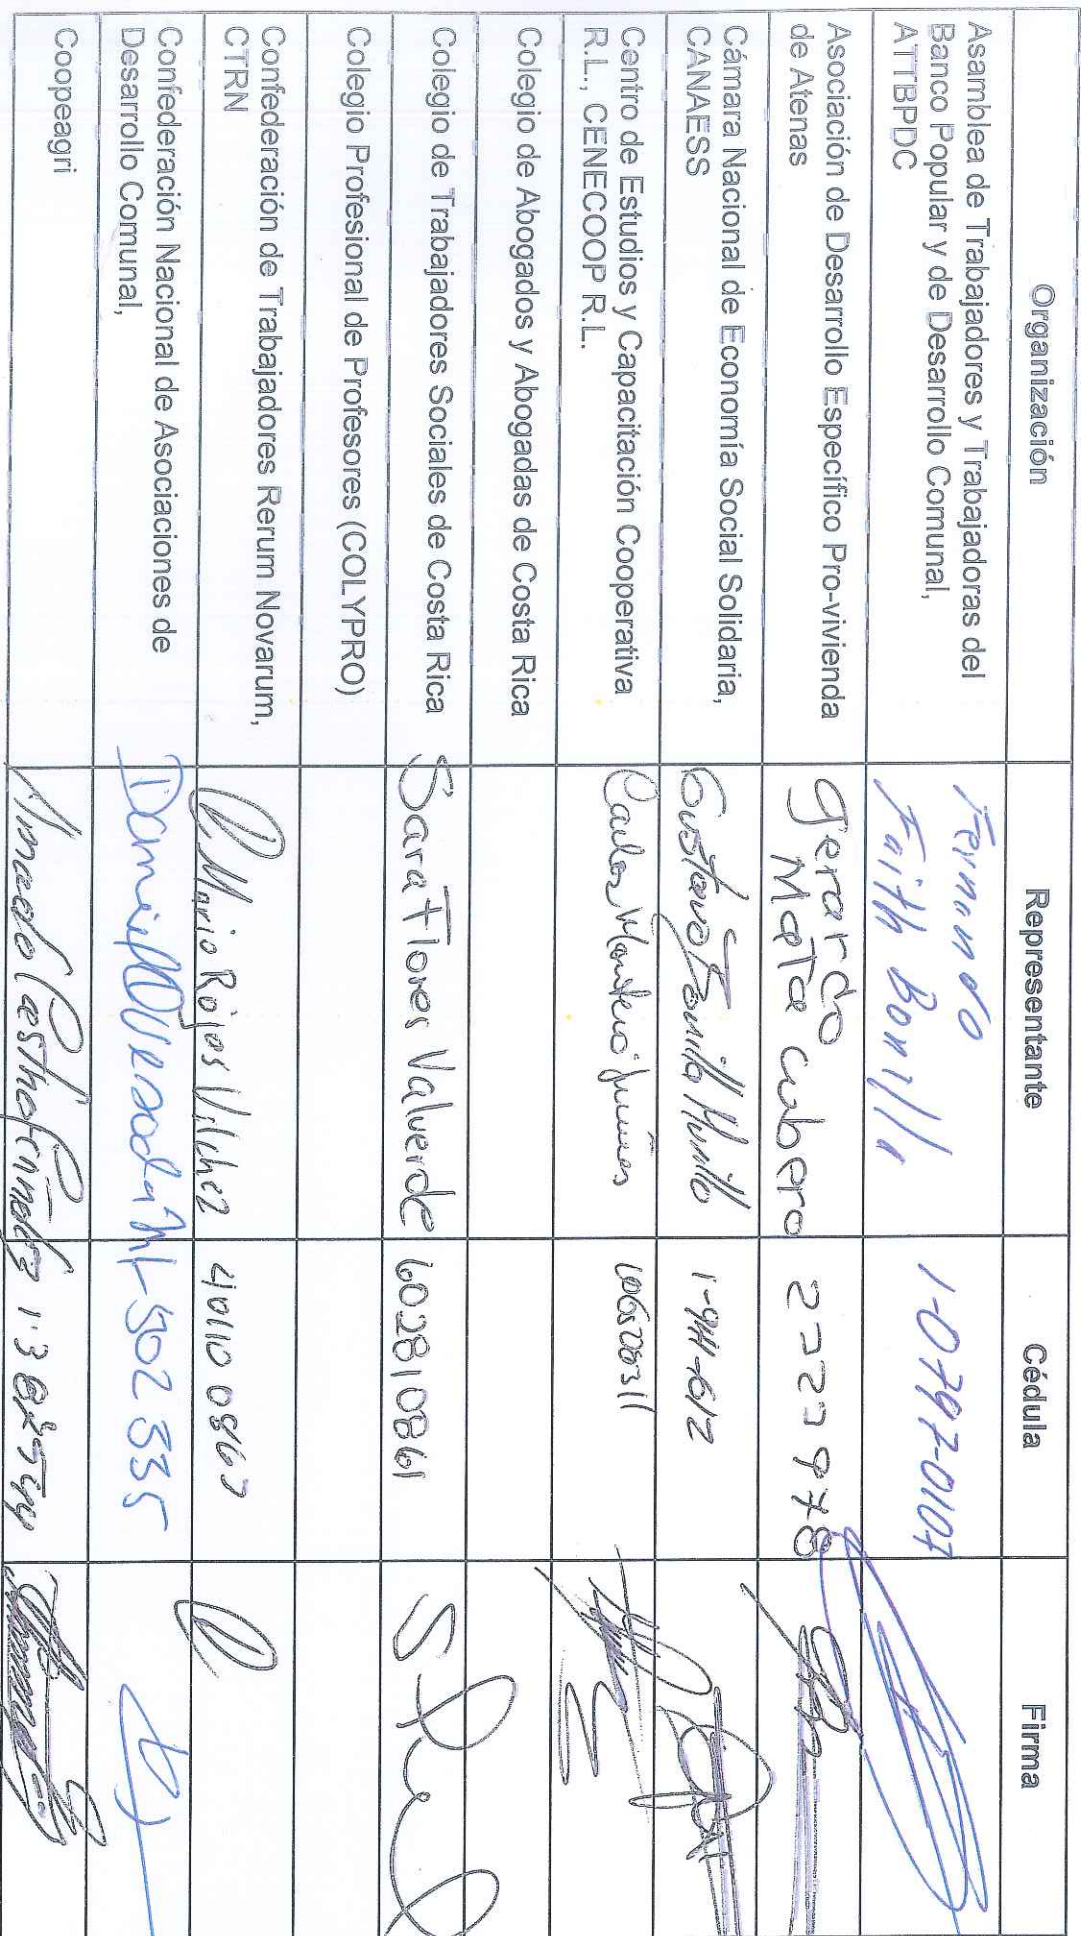 Organización Representante Cédula Firma
Asamblea de Trabajadores y Trabajadoras del
Banco Popular y de Desarrollo Comunal,
ATTBPDC
Fernando
Faith Bonilla
1-0797-0107
Asociación de Desarrollo Específico Pro-vivienda
de Atenas
Gerardo
Mata cubero
Cámara Nacional de Economía Social Solidaria,
CANAESS
Gustavo Murillo
1-944-612
Centro de Estudios y Capacitación Cooperativa
R.L., CENECOOP R.L.
Carlos
Colegio de Abogados y Abogadas de Costa Rica
Colegio de Trabajadores Sociales de Costa Rica
Sara Flores Valverde
602810861
Colegio Profesional de Profesores (COLYPRO)
Confederación de Trabajadores Rerum Novarum,
CTRN
Mario Rojas Vilchez
Confederación Nacional de Asociaciones de
Desarrollo Comunal,
Coopeagri